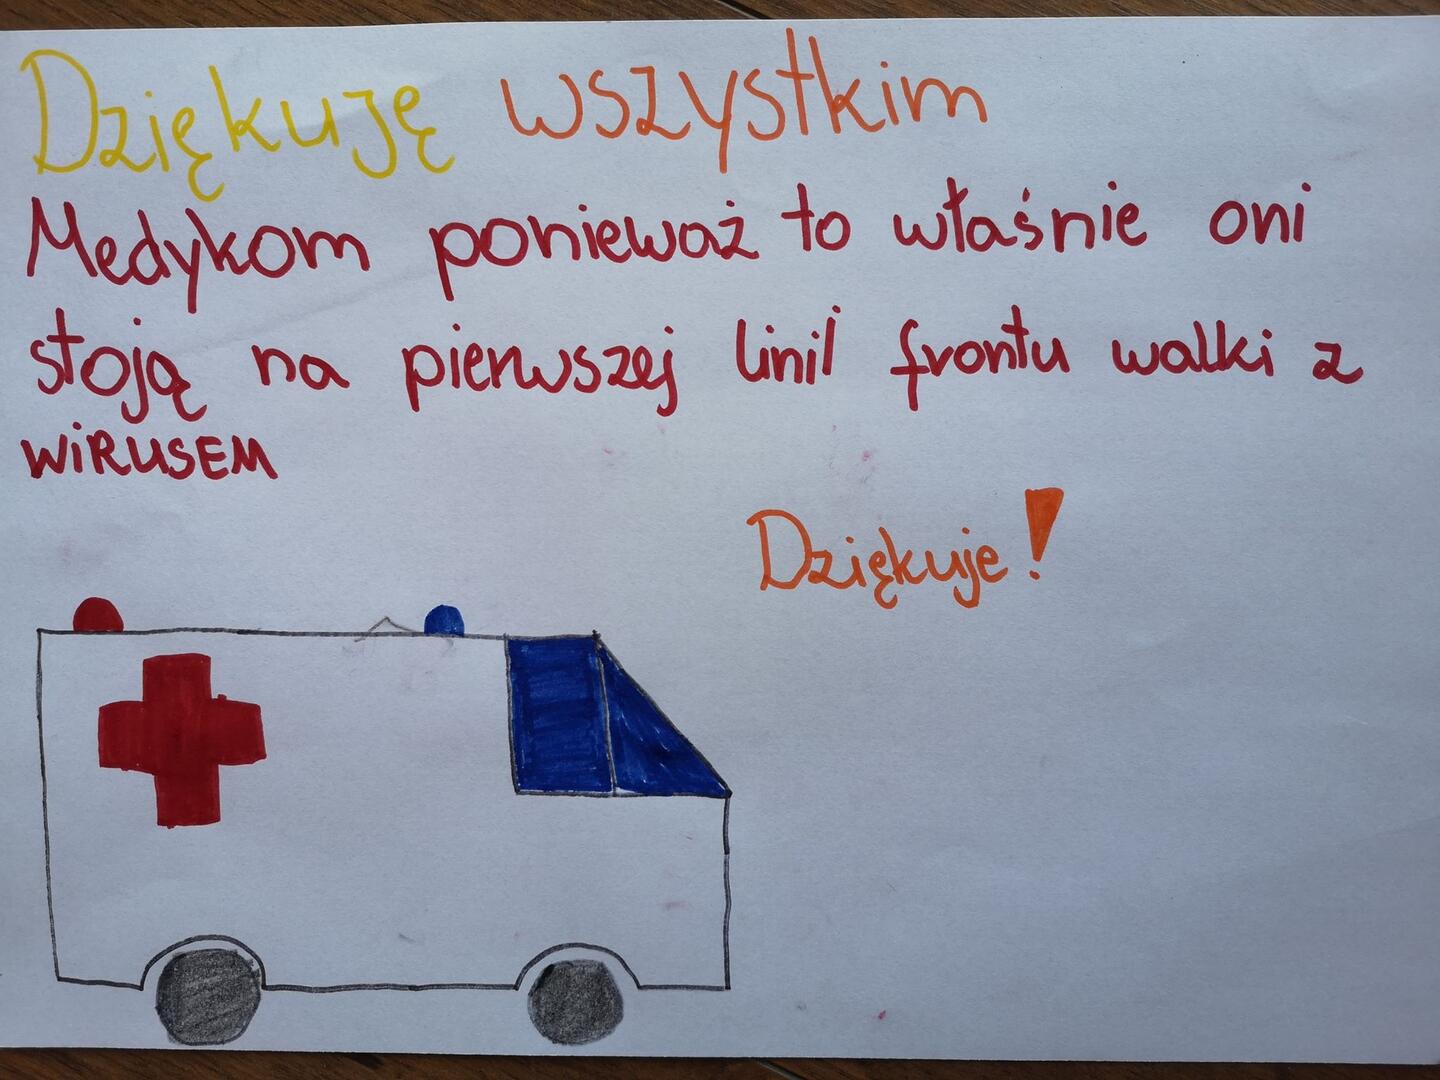 Dziękuję wszystkim
Medykom ponieważ to właśnie oni
stoją na pierwszej linii frontu walki z
WiRUSEM
Dziękuje!